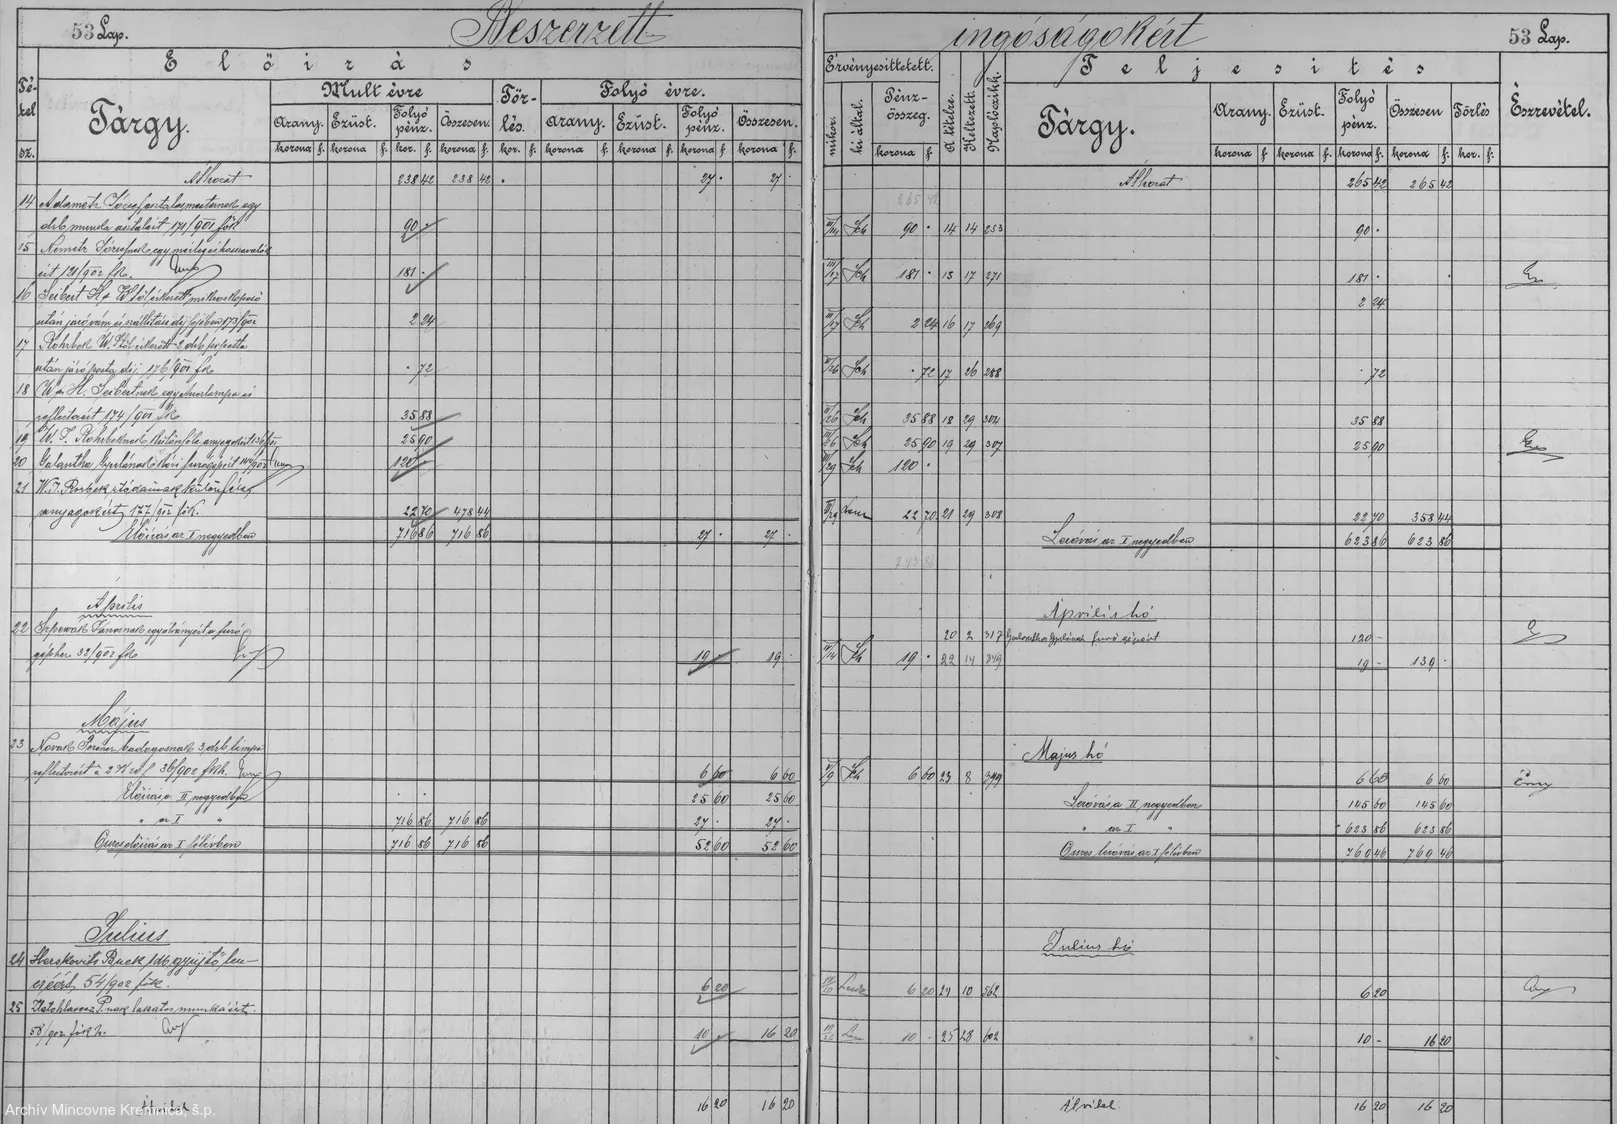 53 Lap.
Beszerzett
ingóságokért
53 Lap.
Előirás
Érvényesittetett.
Teljesités
Észrevétel.
Tétel sz.
Tárgy.
Mult évre
Törlés.
Folyó évre.
Arany. Ezüst. Folyó pénz. Összesen.
Arany. Ezüst. Folyó pénz. Összesen.
mikor. ki által. Pénzösszeg. A tételre. Keltezett. Naplóczikk.
Tárgy. Arany. Ezüst. Folyó pénz. Összesen Törlés
korona f. korona f. kor. f. korona f. kor. f. korona f. korona f. korona f. korona f.
korona f. korona f. korona f. korona f. korona f. kor. f.
Áthozat 238 42 238 42 27 . 27 .
Áthozat 265 42 265 42
265 42
14 Adametz József asztalosmesternek egy
drb munka asztalért 171/901 fők 90 .
III/14 Sch 90 . 14 14 253 90 .
15 Nemetz Józsefnek egy mérleg és hozzávalók
ért 121/902 fk. 181 .
III/17 Sch 181 . 15 17 271 181 .
16 Seibert H. W. től érkezett mikroskopcső 2 24
után járó vám és szállítási díj fejében 173/901 2 24
III/17 Sch 2 24 16 17 269
17 Rohrbek W. től érkezett 2 drb pipetta
után járó posta díj 176/901 fk . 72
III/26 Sch . 72 17 26 288 . 72
18 W. H. Seibertnek egy Auerlampa és
reflectorért 174/901 fk 35 88
III/26 Sch 35 88 18 29 304 35 88
19 W. J. Rohrbeknek különféle anyagokért 136/901 25 90
III/26 Sch 25 90 19 29 307 25 90
20 Galantha Gyulának kézi furógépért 120 .
III/29 Sch 120 .
21 W. J. Rorbek utódainak különféle
anyagokért 177/901 fők. 22 70 478 44
III/29 22 70 21 29 308 22 70 358 44
Előírás az I negyedben 716 86 716 86 27 . 27 .
Lerovás az I negyedben 623 86 623 86
743 86
Április
Április hó
22 egy állványért a furó
géphez 32/902 fk 19 19 .
20 2 317 Galantha Gyulának furó gépért 120 -
IV/14 Sch 19 . 22 14 349 19 - 139 .
Május
Majus hó
23 Novák Ferencz badogosnak 3 drb lámpa
reflectorért á 2 K 20 f 36/902 fkh. 6 60 6 60
V/9 Sch 6 60 23 8 399 6 60 6 60
Előírás a II negyedben . . 25 60 25 60
Lerovás a II negyedben 145 60 145 60
" az I " 716 86 716 86 27 . 27 .
" az I " 623 86 623 86
Összes előírás az I félévben 716 86 716 86 52 60 52 60
Összes lerovás az I félévben 769 46 769 46
Julius
Julius hó
24 Herskovits B.nek 1 db gyüjtő len-
cséért 54/902 fők. 6 20
6 20 24 10 562 6 20
25 P.nak lakatos munkáért
58/902 fők h. 10 . 16 20
10 . 25 28 602 10 - 16 20
Átvitel 16 20 16 20
Átvitel 16 20 16 20
Archív Mincovne Kremnica, š.p.